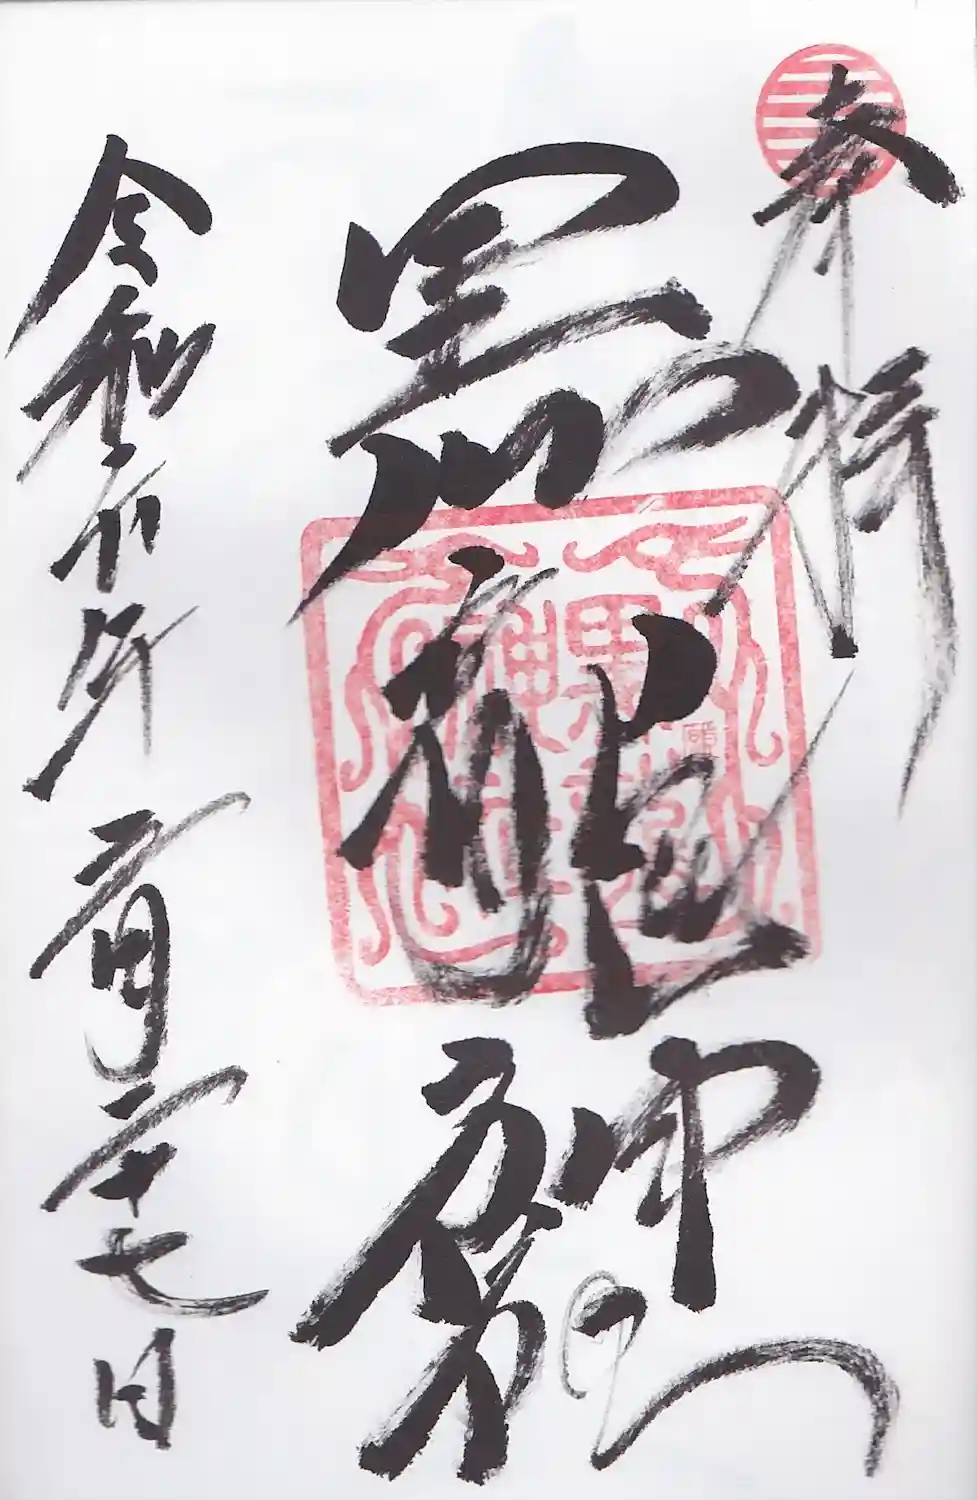 奉拝
黒龍神社
令和六年二月二十七日